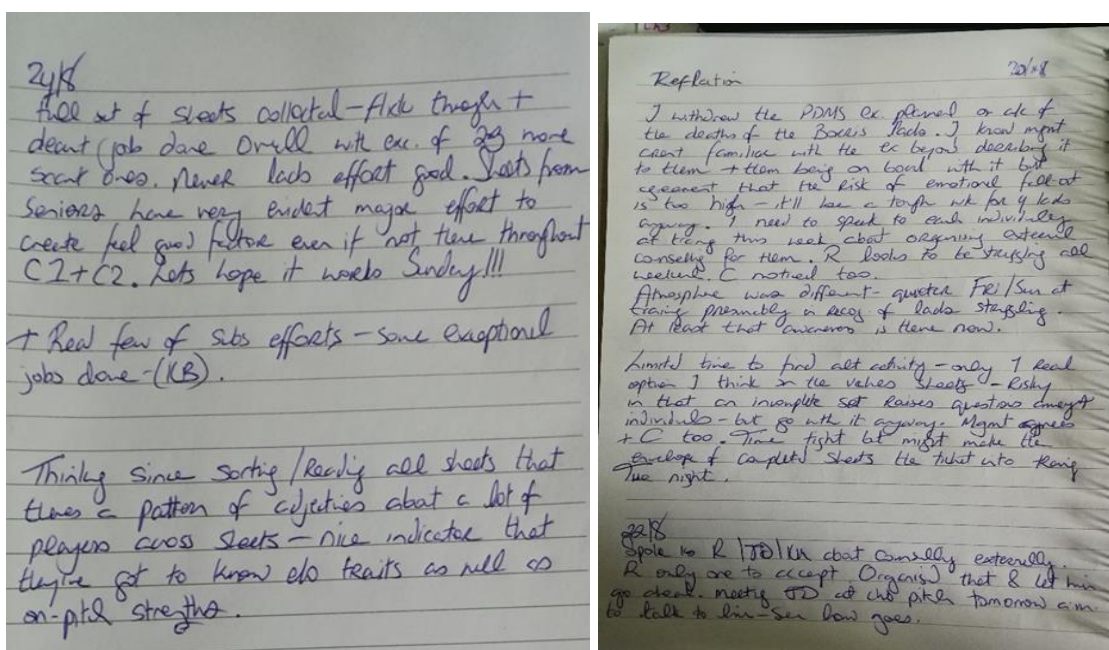 24/8
Full set of sheets collected - flick through +
decent job done Overall with exc. of 2/3 more
scant ones. Never lacks effort good. Sheets from
Seniors have very evident major effort to
create feel good factor even if not there throughout
C1 + C2. Lets hope it works Sunday!!!
+ Real few of subs efforts - some exceptional
jobs done - (KB).
Thinking since sorting / Reading all sheets that
theres a pattern of adjectives about a lot of
players across sheets - nice indicator that
they've got to know e/o traits as well as
on-pitch strengths.
Reflection
I withdrew the PDMS ex planned on a/c of
the deaths of the lads. I know mgmt
arent familiar with the ex beyond describing it
to them + them being on board with it but
agreement that the Risk of emotional fall-out
is too high - it'll be a tough wk for 4 lads
anyway. I need to speak to each individually
at traing this week about organising external
conselling for them. R looks to be struggling all
weekend. C noticed too.
Atmosphere was different - quieter Fri/Sun at
traing presumably in recog of lads struggling.
At least that awareness is there now.
Limited time to find alt activity - only 1 Real
option I think is the values sheets - Risky
in that an incomplete set Raises questions amongst
individuals - but go with it anyway. Mgmt agrees
+ C too. Time tight but might make the
envelope of completed sheets the ticket into traing
Tue night.
22/8
Spoke to R / JD / KK about conselling externally.
R only one to accept. Organised that & let him
go ahead. meeting JD at pitch tomorrow aim
to talk to him - see how goes.